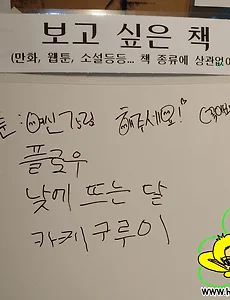 보고 싶은 책
(만화, 웹툰, 소설등등... 책 종류에 상관없이
툰: 여신강림 해주세요!
플로우
낮에 뜨는 달
카케구루이
www.H